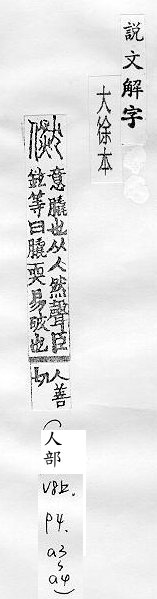 說文解字
大徐本
㒄
意膬也从人然聲臣
鉉等曰膬耎易破也
人善
切
(人部
V8上.
P4.
a3
~
a4)